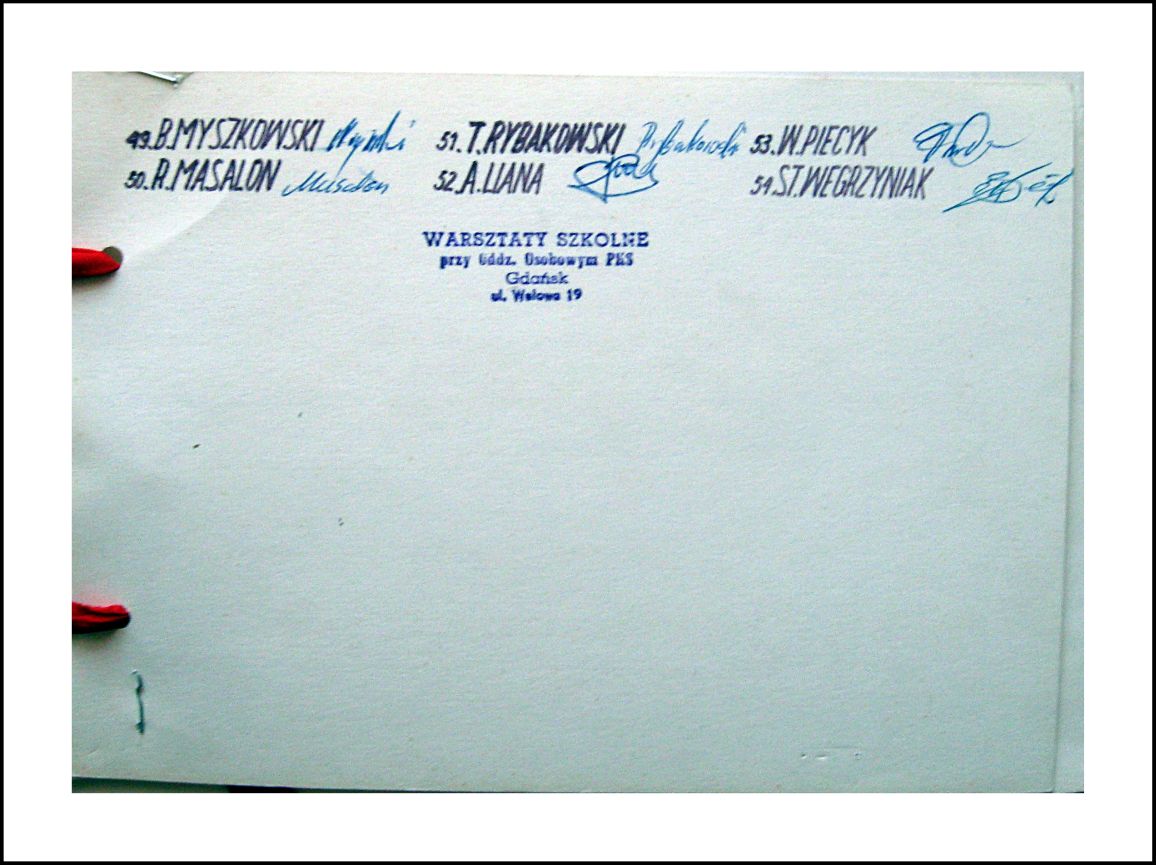 49. B. MYSZKOWSKI 51. T. RYBAKOWSKI Rybakowski 53. W. PIECYK
50. R. MASALON Masalon 52. A. LIANA 54. ST. WEGRZYNIAK
WARSZTATY SZKOLNE
przy Oddz. Osobowym PKS
Gdańsk
ul. Wałowa 19